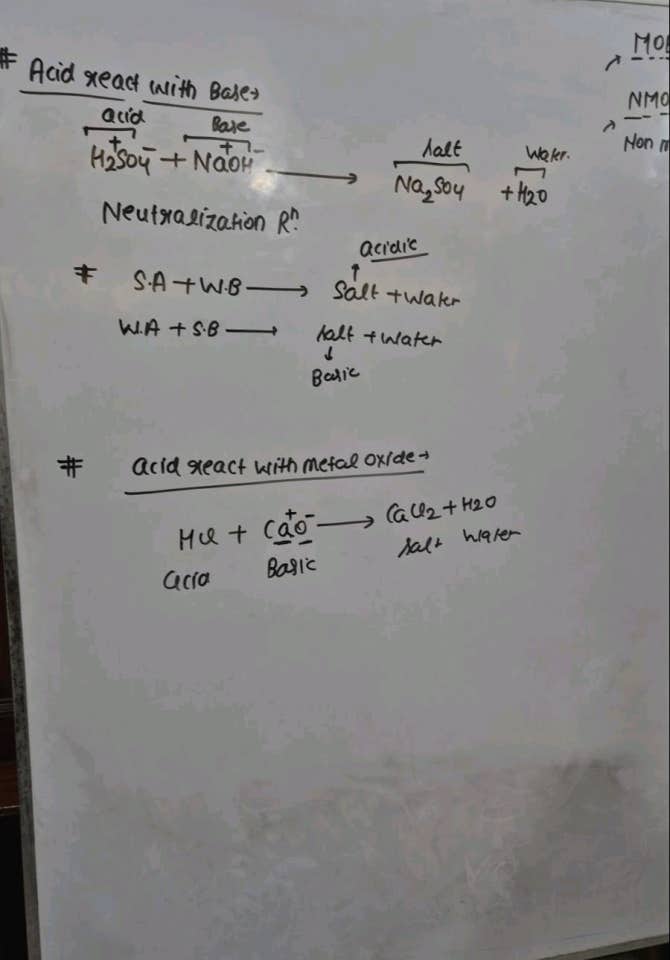 # Acid react with Base→
acid Base salt Water.
H2SO4 + NaOH → Na2SO4 + H2O
Neutralization Rn.
acidic
# S.A + W.B → Salt + Water
W.A + S.B → salt + Water
Basic
# acid react with metal oxide→
HCl + CaO → CaCl2 + H2O
acid Basic salt Water
NMO
Non